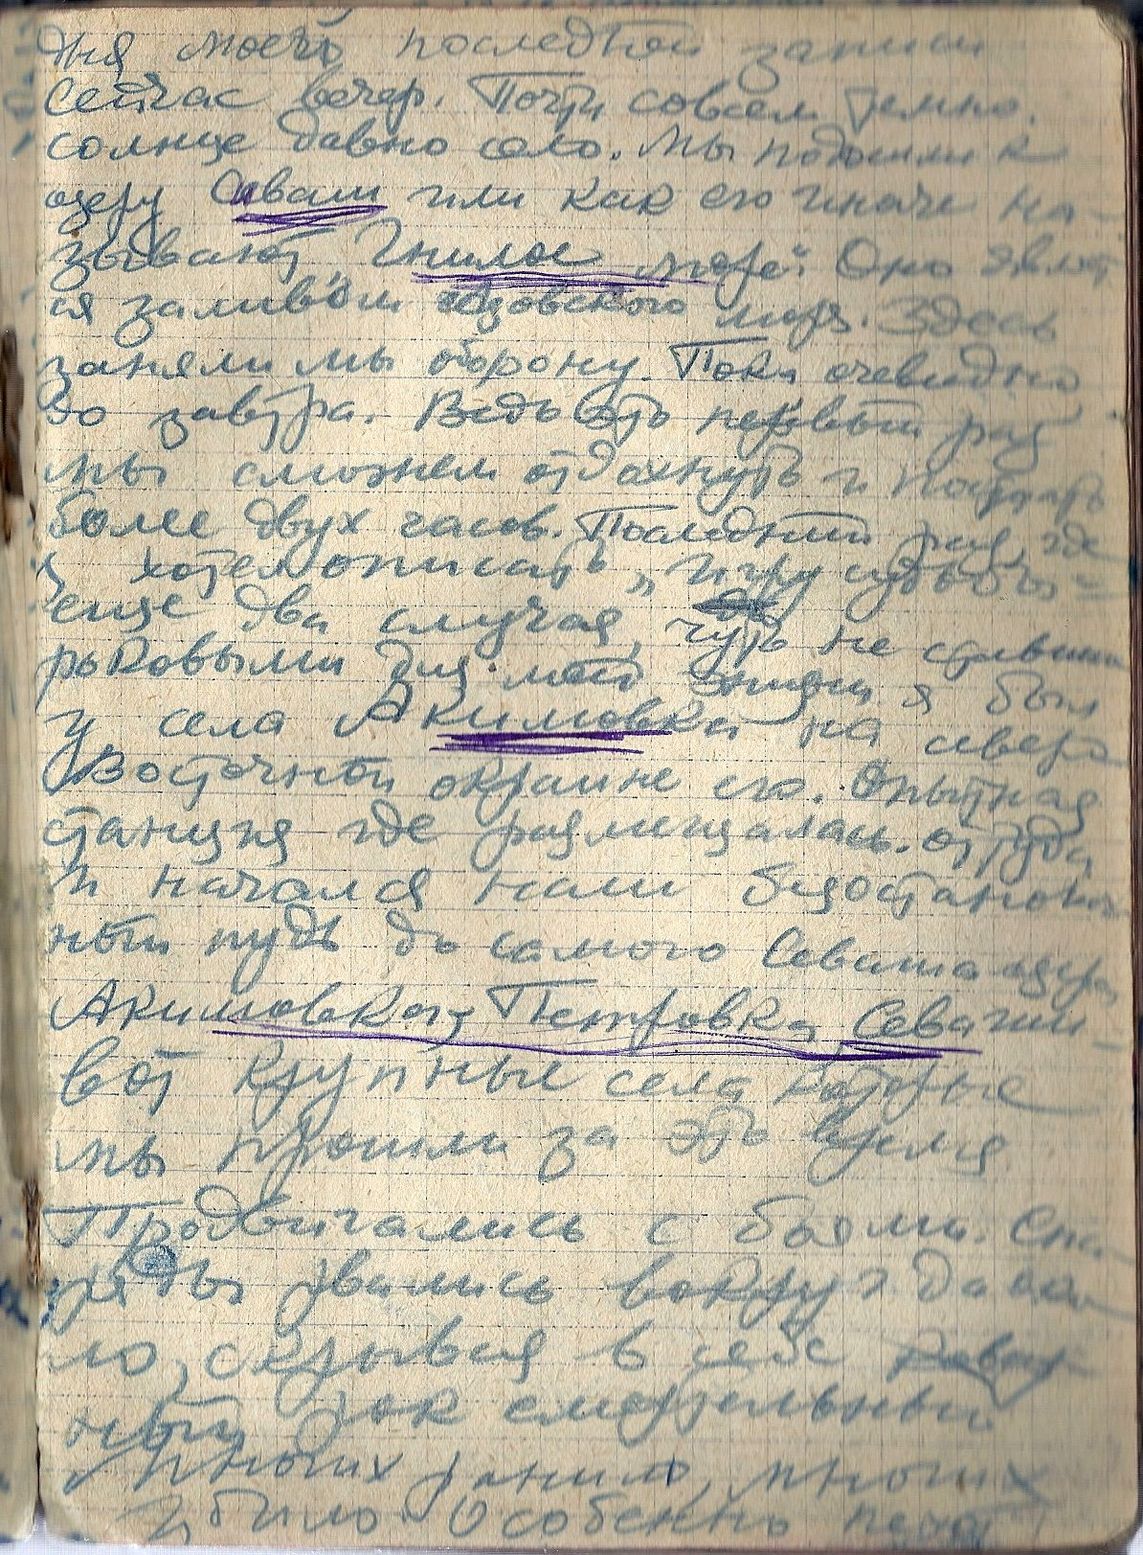 дня моей последней записи
Сейчас вечер. Почти совсем темно.
солнце давно село. Мы подошли к
озеру Сиваш или как его иначе на-
зывают Гнилое море. Оно являет
ся заливом Азовского моря. Здесь
заняли мы оборону. Пока очевидно
до завтра. Ведь это первый раз
мы сможем отдохнуть и поспать
более двух часов. Последний раз, где
я хотел описать "Игру судьбы" -
еще два случая, чуть не ставшими
роковыми для моей жизни я был
у села Акимовки на северо
Восточной окраине его. Опытная
станция где размещалась. оттуда
и начался наш безостановоч
ный путь до самого Сиваша озера
Акимовка, Петровка, Севаши -
вот крупные села которые
мы прошли за это время
Продвигались с боями. Сна
ряды рвались вокруг да око
ло, скрывая в себе
ный рок смертельный
Многих ранило, многих
убило. Особенно